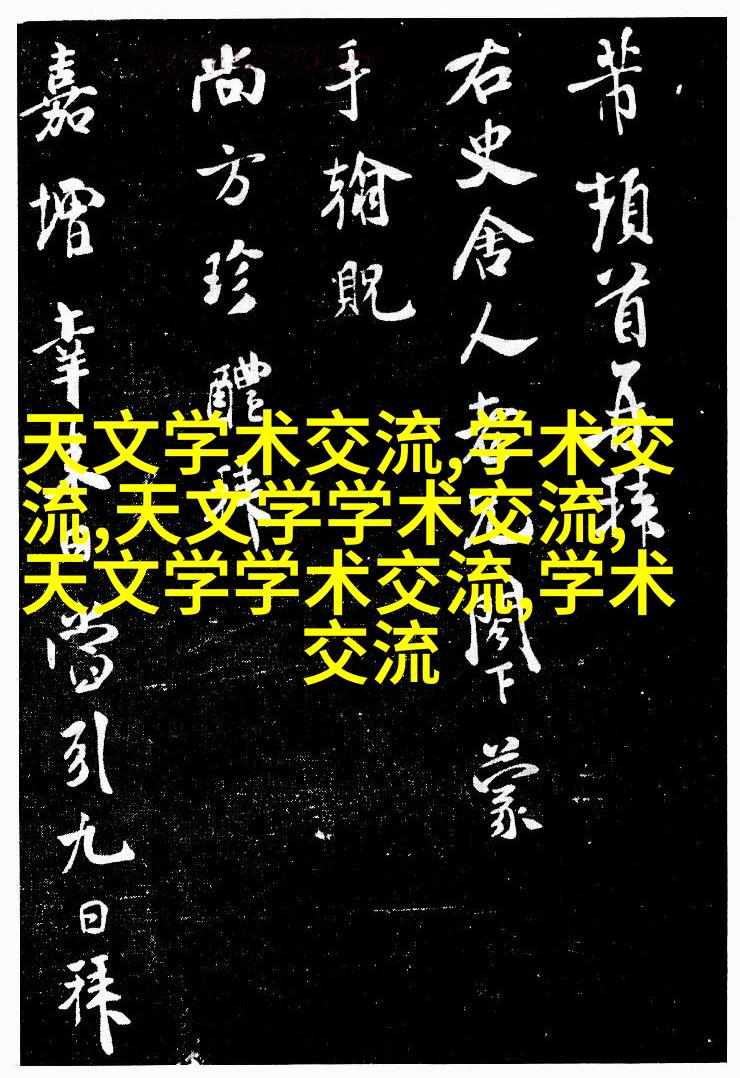 芾頓首再拜
右史舍人老兄閣下蒙
手翰貺
尚方珍醴拜
嘉增幸當引九日拜
天文学术交流,学术交
流,天文学学术交流,
天文学学术交流,学术
交流